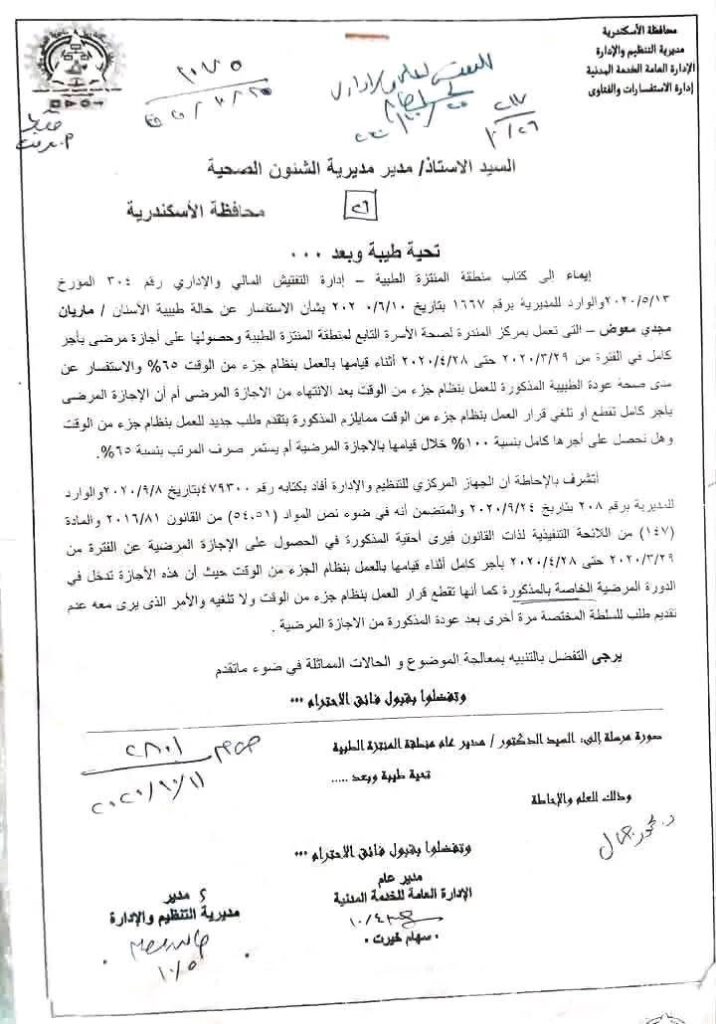 محافظة الأسكندرية
مديرية التنظيم والإدارة
الإدارة العامة الخدمة المدنية
إدارة الاستفسارات والفتاوى
السيد الاستاذ/ مدير مديرية الشئون الصحية
محافظة الأسكندرية
٢٦
تحية طيبة وبعد ٠٠٠
إيماء إلى كتاب منطقة المنتزة الطبية – إدارة التفتيش المالي والإداري رقم ٣٠٤ المؤرخ
٢٠٢٠/٥/١٣والوارد للمديرية برقم ١٦٦٧ بتاريخ ٢٠٢٠/٦/١٠ بشأن الاستفسار عن حالة طبيبة الأسنان / ماريان
مجدي معوض – التى تعمل بمركز المندرة لصحة الأسرة التابع لمنطقة المنتزة الطبية وحصولها على أجازة مرضى بأجر
كامل في الفترة من ٢٠٢٠/٣/٢٩ حتى ٢٠٢٠/٤/٢٨ أثناء قيامها بالعمل بنظام جزء من الوقت ٦٥% والاستفسار عن
مدى صحة عودة الطبيبة المذكورة للعمل بنظام جزء من الوقت بعد الانتهاء من الاجازة المرضى أم أن الإجازة المرضى
بأجر كامل تقطع أو تلغي قرار العمل بنظام جزء من الوقت ممايلزم المذكورة بتقدم طلب جديد للعمل بنظام جزء من الوقت
وهل تحصل على أجرها كامل بنسبة ١٠٠% خلال قيامها بالاجازة المرضية أم يستمر صرف المرتب بنسبة ٦٥%.
أتشرف بالإحاطة ان الجهاز المركزي للتنظيم والإدارة أفاد بكتابه رقم ٤٧٩٣٠٠بتاريخ ٢٠٢٠/٩/٨والوارد
للمديرية برقم ٢٠٨ بتاريخ ٢٠٢٠/٩/٢٤ والمتضمن أنه في ضوء نص المواد (٥٤،٥١) من القانون ٢٠١٦/٨١ والمادة
(١٤٧) من اللائحة التنفيذية لذات القانون فيرى أحقية المذكورة في الحصول على الإجازة المرضية عن الفترة من
٢٠٢٠/٣/٢٩ حتى ٢٠٢٠/٤/٢٨ بأجر كامل أثناء قيامها بالعمل بنظام الجزء من الوقت حيث أن هذه الأجازة تدخل في
الدورة المرضية الخاصة بالمذكورة كما أنها تقطع قرار العمل بنظام جزء من الوقت ولا تلغيه والأمر الذى يرى معه عدم
تقديم طلب للسلطة المختصة مرة أخرى بعد عودة المذكورة من الاجازة المرضية .
يرجى التفضل بالتنبيه بمعالجة الموضوع و الحالات المماثلة في ضوء ماتقدم
وتفضلوا بقبول فائق الاحترام ٠٠٠
صورة مرسلة إلى: السيد الدكتور / مدير عام منطقة المنتزة الطبية
تحية طيبة وبعد .....
وذلك للعلم والإحاطة
٢٨٠١
٢٠٢٠/١٠/١١
وتفضلوا بقبول فائق الاحترام ٠٠٠
مدير عام
الإدارة العامة للخدمة المدنية
٠ سهام خيرت ٠
مدير
مديرية التنظيم والإدارة
١٠/٥